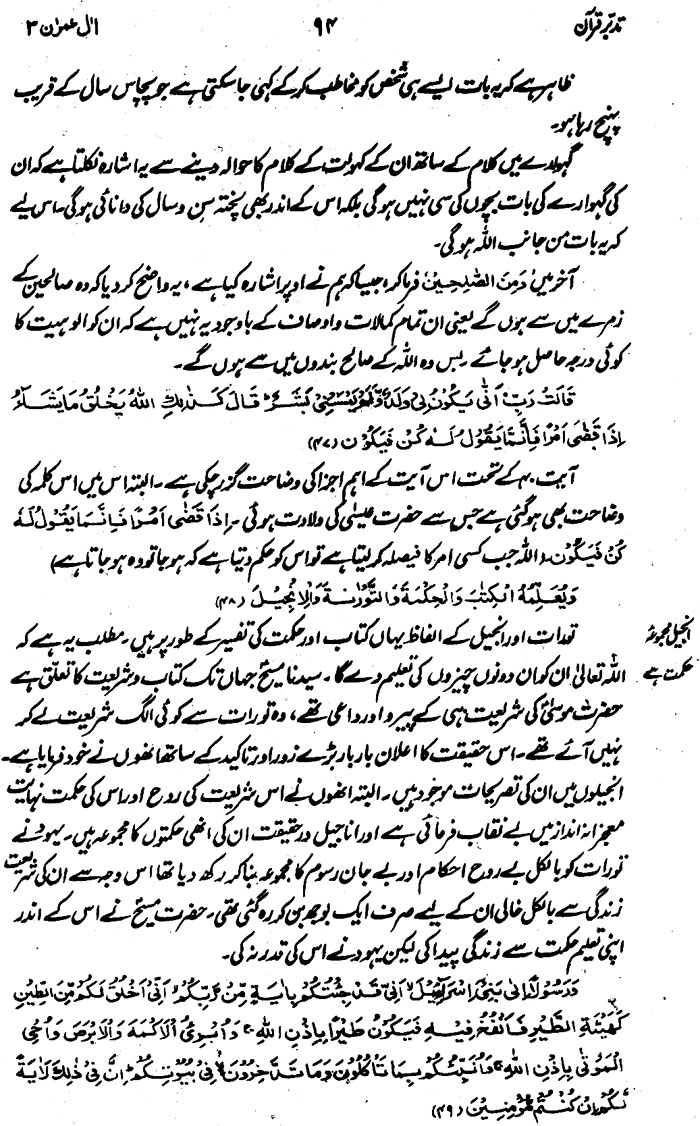 تدبر قرآن ۹۴ اٰل عمرٰن ۳
ظاہر ہے کہ یہ بات ایسے ہی شخص کو مخاطب کر کے کہی جا سکتی ہے جو پچاس سال کے قریب
پہنچ رہا ہو۔
گہوارے میں کلام کے ساتھ ان کے کہولت کے کلام کا حوالہ دینے سے یہ اشارہ نکلتا ہے کہ ان
کی گہوارے کی بات بچوں کی سی نہیں ہوگی بلکہ اس کے اندر بھی پختہ سن و سال کی دانائی ہوگی۔ اس لیے
کہ یہ بات من جانب اللہ ہوگی۔
آخر میں وَمِنَ الصّٰلِحِیْنَ فرما کر، جیسا کہ ہم نے اوپر اشارہ کیا ہے، یہ واضح کر دیا کہ وہ صالحین کے
زمرے میں سے ہوں گے یعنی ان تمام کمالات و اوصاف کے باوجود یہ نہیں ہے کہ ان کو الوہیت کا
کوئی درجہ حاصل ہو جائے۔ بس وہ اللہ کے صالح بندوں میں سے ہوں گے۔
قَالَتْ رَبِّ اَنّٰی یَکُوْنُ لِیْ وَلَدٌ وَّلَمْ یَمْسَسْنِیْ بَشَرٌ ؕ قَالَ کَذٰلِکِ اللّٰہُ یَخْلُقُ مَا یَشَآءُ
اِذَا قَضٰی اَمْرًا فَاِنَّمَا یَقُوْلُ لَہٗ کُنْ فَیَکُوْنُ (۴۷)
آیت ۴۰ کے تحت اس آیت کے اہم اجزا کی وضاحت گزر چکی ہے۔ البتہ اس میں اس کلمہ کی
وضاحت بھی ہوگئی ہے جس سے حضرت عیسیٰؑ کی ولادت ہوئی۔ اِذَا قَضٰی اَمْرًا فَاِنَّمَا یَقُوْلُ لَہٗ
کُنْ فَیَکُوْنُ۔ (اللہ جب کسی امر کا فیصلہ کر لیتا ہے تو اس کو حکم دیتا ہے کہ ہو جا تو وہ ہو جاتا ہے)
وَیُعَلِّمُہُ الْکِتٰبَ وَالْحِکْمَۃَ وَالتَّوْرٰىۃَ وَالْاِنْجِیْلَ (۴۸)
انجیل مجموعۂ
حکمت ہے
تورات اور انجیل کے الفاظ یہاں کتاب اور حکمت کی تفسیر کے طور پر ہیں۔ مطلب یہ ہے کہ
اللہ تعالیٰ ان کو ان دونوں چیزوں کی تعلیم دے گا۔ سیدنا مسیحؑ جہاں تک کتاب و شریعت کا تعلق ہے
حضرت موسیٰؑ کی شریعت ہی کے پیرو اور داعی تھے، وہ تورات سے کوئی الگ شریعت لے کر
نہیں آئے تھے۔ اس حقیقت کا اعلان بار بار بڑے زور اور تاکید کے ساتھ انھوں نے خود فرمایا ہے۔
انجیلوں میں ان کی تصریحات موجود ہیں۔ البتہ انھوں نے اس شریعت کی روح اور اس کی حکمت نہایت
معجزانہ انداز میں بے نقاب فرمائی ہے اور اناجیل درحقیقت ان کی انھی حکمتوں کا مجموعہ ہیں۔ یہود نے
تورات کو بالکل بے روح احکام اور بے جان رسوم کا مجموعہ بنا کر رکھ دیا تھا اس وجہ سے ان کی شریعت
زندگی سے بالکل خالی ان کے لیے صرف ایک بوجھ بن کر رہ گئی تھی۔ حضرت مسیحؑ نے اس کے اندر
اپنی تعلیم حکمت سے زندگی پیدا کی لیکن یہود نے اس کی قدر نہ کی۔
وَرَسُوْلًا اِلٰی بَنِیْٓ اِسْرَآءِیْلَ اَنِّیْ قَدْ جِئْتُکُمْ بِاٰیَۃٍ مِّنْ رَّبِّکُمْ اَنِّیْٓ اَخْلُقُ لَکُمْ مِّنَ الطِّیْنِ
کَھَیْئَۃِ الطَّیْرِ فَاَنْفُخُ فِیْہِ فَیَکُوْنُ طَیْرًا بِاِذْنِ اللّٰہِ ۚ وَاُبْرِئُ الْاَکْمَہَ وَالْاَبْرَصَ وَاُحْیِ
الْمَوْتٰی بِاِذْنِ اللّٰہِ ۚ وَاُنَبِّئُکُمْ بِمَا تَاْکُلُوْنَ وَمَا تَدَّخِرُوْنَ فِیْ بُیُوْتِکُمْ ؕ اِنَّ فِیْ ذٰلِکَ لَاٰیَۃً
لَّکُمْ اِنْ کُنْتُمْ مُّؤْمِنِیْنَ (۴۹)